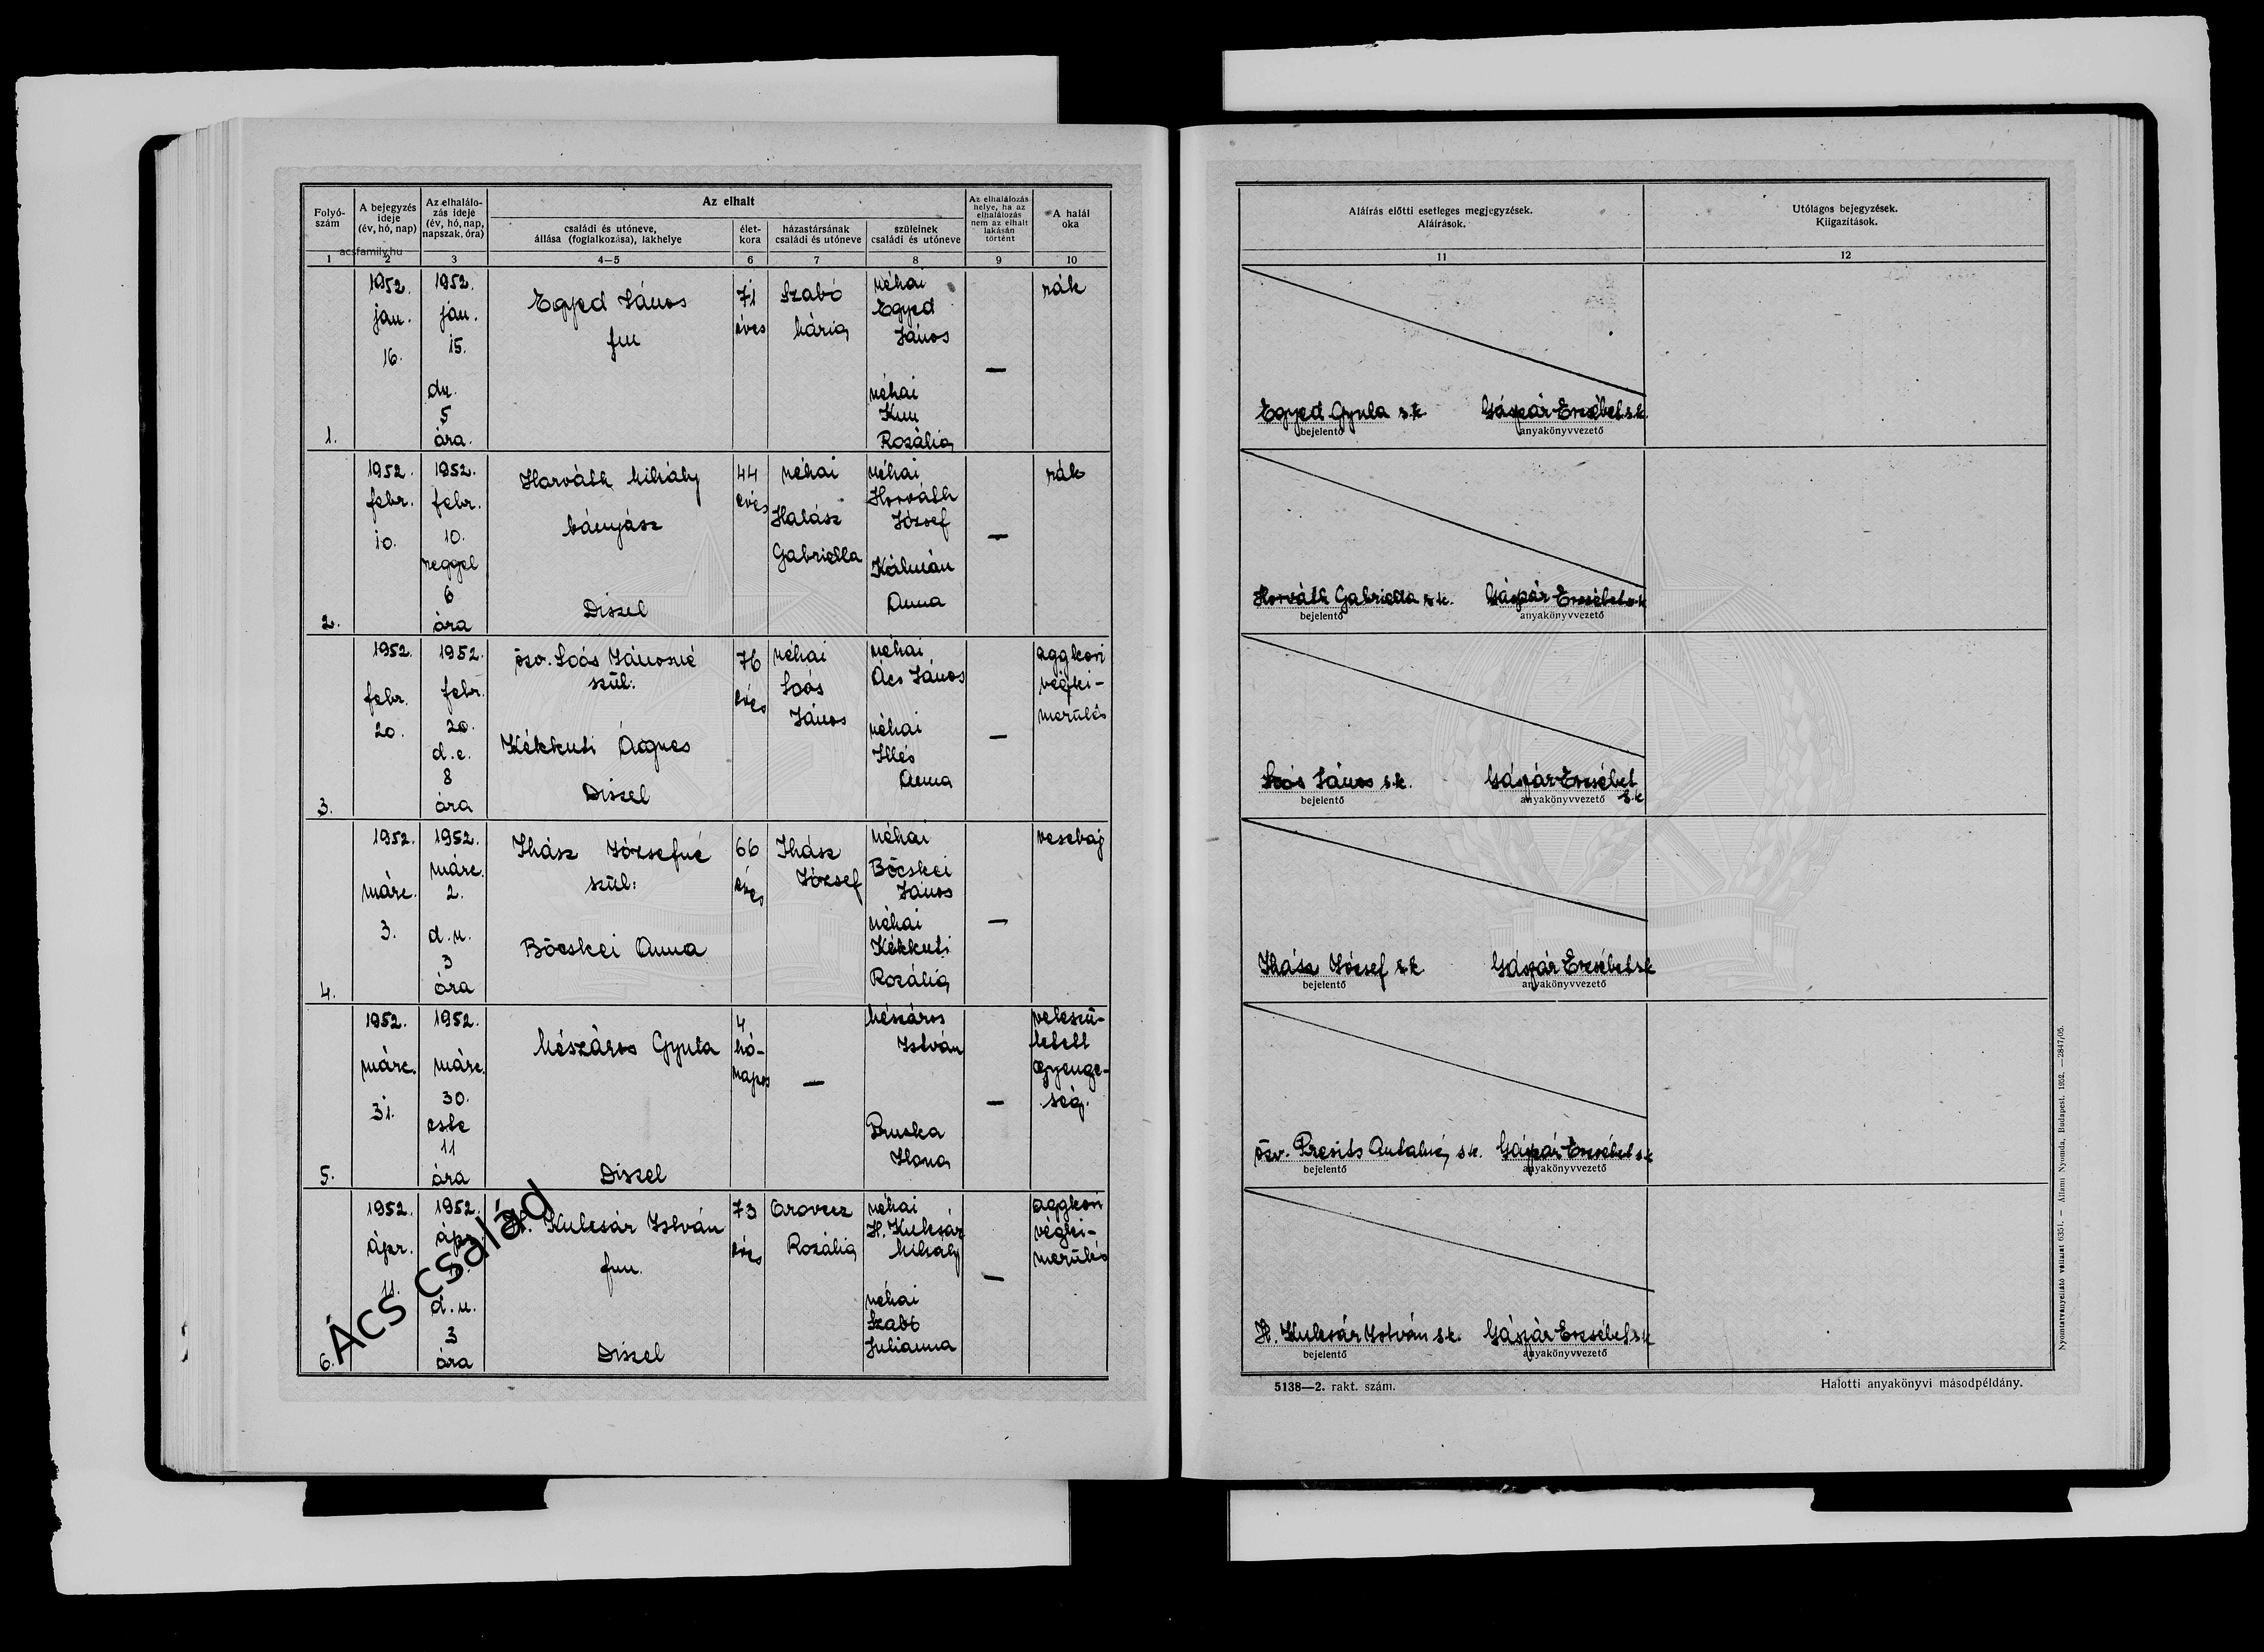 Folyó-
szám
A bejegyzés
ideje
(év, hó, nap)
Az elhalálo-
zás ideje
(év, hó, nap,
napszak, óra)
Az elhalt
családi és utóneve,
állása (foglalkozása), lakhelye
élet-
kora
házastársának
családi és utóneve
szüleinek
családi és utóneve
Az elhalálozás
helye, ha az
elhalálozás
nem az elhalt
lakásán
történt
A halál
oka
acsfamily.hu
1 2 3 4—5 6 7 8 9 10
1.
1952.
jan.
16.
1952.
jan.
15.
du.
5
óra.
Egyed János
fm
71
éves
Szabó
Mária
néhai
Egyed
János
néhai
Kun
Rozália
—
rák
2.
1952.
febr.
10.
1952.
febr.
10.
reggel
6
óra
Horváth Mihály
bányász
Diszel
44
éves
néhai
Halász
Gabriella
néhai
Horváth
József
Kálmán
Anna
—
rák
3.
1952.
febr.
20.
1952.
febr.
20.
d.e.
8
óra
özv. Soós Jánosné
szül:
Kékkuti Ágnes
Diszel
76
éves
néhai
Soós
János
néhai
Ács János
néhai
Illés
Anna
—
aggkori
végki-
merülés
4.
1952.
márc.
3.
1952.
márc.
2.
d.u.
3
óra
Ihász Józsefné
szül:
Böcskei Anna
66
éves
Ihász
József
néhai
Böcskei
János
néhai
Kékkuti
Rozália
—
vesebaj
5.
1952.
márc.
31.
1952.
márc.
30.
este
11
óra
Mészáros Gyula
Diszel
4
hó-
napos
—
Mészáros
István
Pruska
Ilona
—
veleszü-
letett
gyenge-
ség.
6.
1952.
ápr.
11.
1952.
ápr.
d.u.
3
óra
H. Kulcsár István
fm.
Diszel
73
éves
Orovecz
Rozália
néhai
H. Kulcsár
Mihály
néhai
Szabó
Julianna
—
aggkori
végki-
merülés
Ács család
Aláírás előtti esetleges megjegyzések.
Aláírások.
Utólagos bejegyzések.
Kiigazítások.
11 12
Egyed Gyula s.k. Gáspár Erzsébet s.k.
bejelentő anyakönyvvezető
Horváth Gabriella s.k. Gáspár Erzsébet s.k.
bejelentő anyakönyvvezető
Soós János s.k. Gáspár Erzsébet
s.k.
bejelentő anyakönyvvezető
Ihász József s.k. Gáspár Erzsébet s.k.
bejelentő anyakönyvvezető
özv. Presits Antalné s.k. Gáspár Erzsébet s.k.
bejelentő anyakönyvvezető
H. Kulcsár István s.k. Gáspár Erzsébet s.k.
bejelentő anyakönyvvezető
5138—2. rakt. szám.
Halotti anyakönyvi másodpéldány.
Nyomtatványellátó vállalat 6351. — Állami Nyomda, Budapest. 1952. —2847/05.